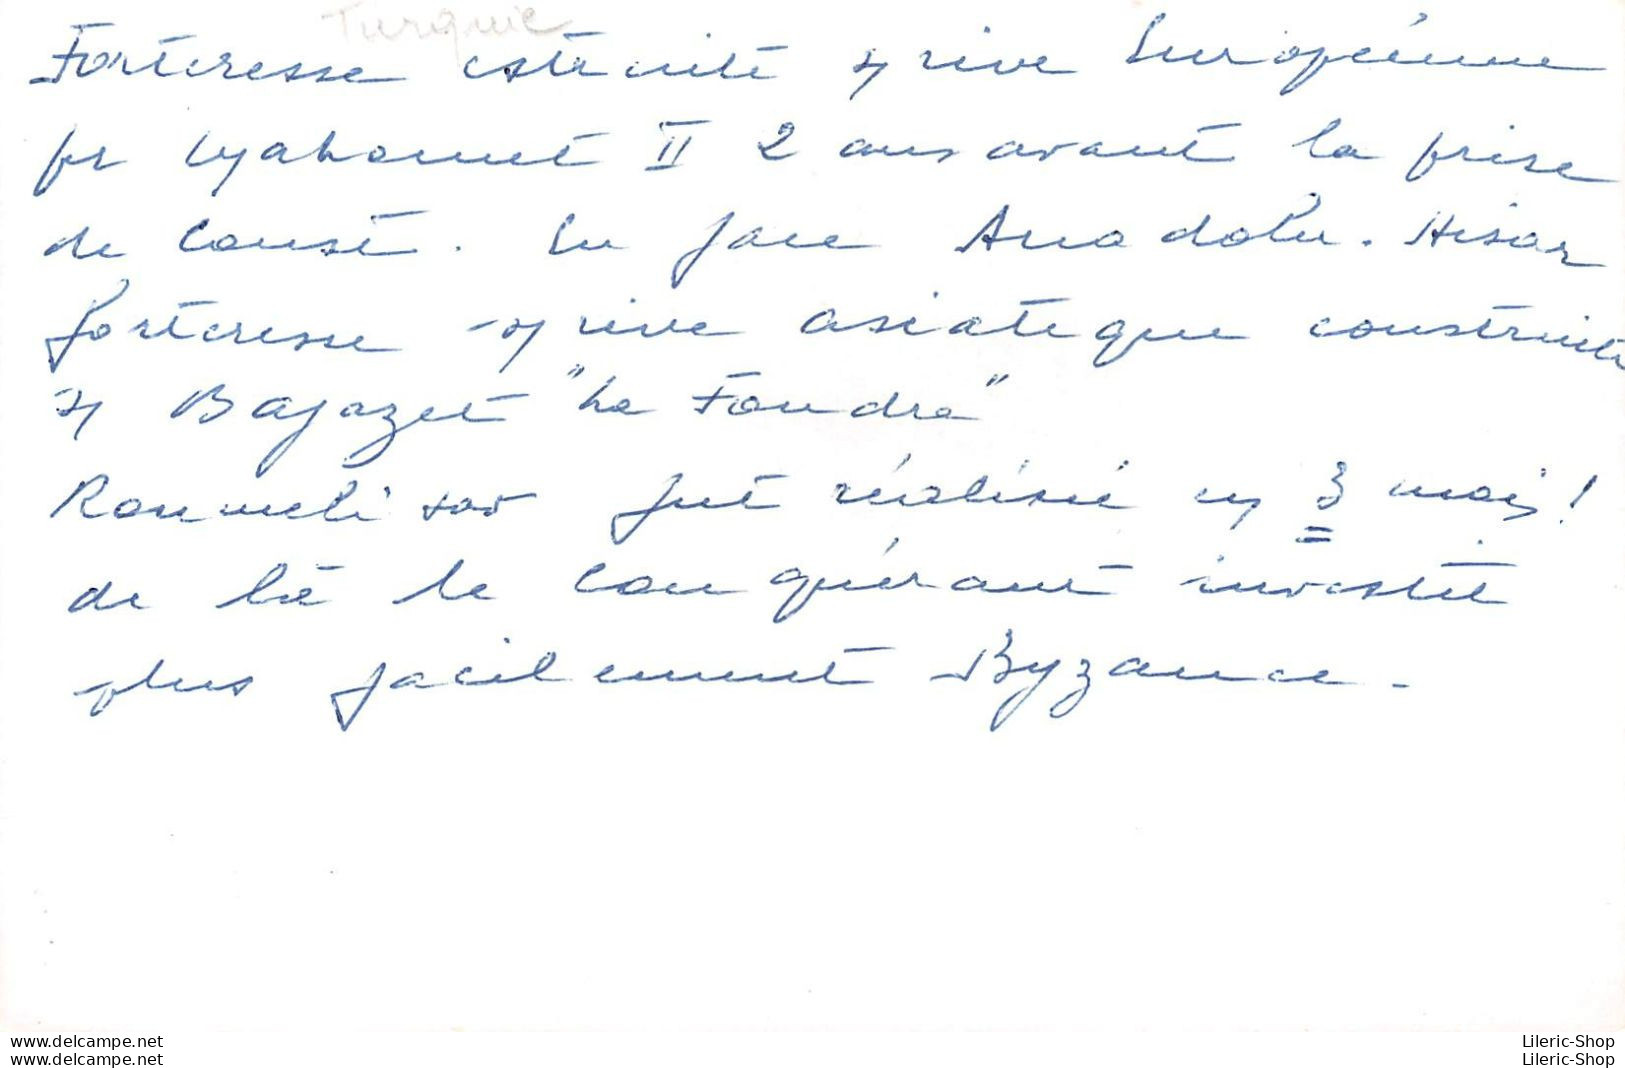 Turquie
Forteresse cstruite s/ rive Européenne
pr Mahomet II 2 ans avant la prise
de Const. En face Anadolu. Hisar
forteresse s/ rive asiatique construite
Bajazet "La Foudre"
Roumeli sar fut réalisé en 3 mois !
de là le Conquérant investit
plus facilement Byzance.
www.delcampe.net Lileric-Shop
www.delcampe.net Lileric-Shop